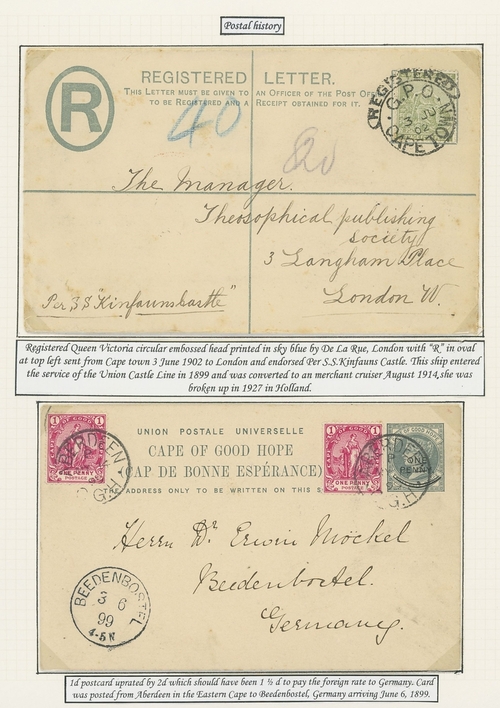 Postal history
REGISTERED LETTER.
THIS LETTER MUST BE GIVEN TO AN OFFICER OF THE POST OFF
TO BE REGISTERED AND A RECEIPT OBTAINED FOR IT.
R
40
REGISTERED
G.P.O.
3 JU
02
CAPE TOWN
The Manager.
Theosophical publishing
society
3 Langham Place
London W.
Per SS "Kinfaunscastle"
Registered Queen Victoria circular embossed head printed in sky blue by De La Rue, London with "R" in oval
at top left sent from Cape town 3 June 1902 to London and endorsed Per S.S.Kinfauns Castle. This ship entered
the service of the Union Castle Line in 1899 and was converted to an merchant cruiser August 1914,she was
broken up in 1927 in Holland.
UNION POSTALE UNIVERSELLE
CAPE OF GOOD HOPE
(CAP DE BONNE ESPÉRANCE)
THE ADDRESS ONLY TO BE WRITTEN ON THIS S
1 1
ONE PENNY
ABERDEEN
C.G.H
1 1
ONE PENNY
ABERDEEN
C.G.H
ONE
PENNY
Herrn Dr. Erwin Möckel
Beidenbostel.
Germany.
BEEDENBOSTEL
3 6
99
4-5N
1d postcard uprated by 2d which should have been 1 ½ d to pay the foreign rate to Germany. Card
was posted from Aberdeen in the Eastern Cape to Beedenbostel, Germany arriving June 6, 1899.